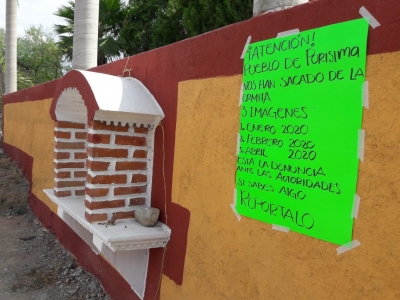 ¡ATENCIÓN!
PUEBLO DE PURISIMA
NOS HAN SACADO DE LA
ERMITA
3 IMAGENES
1. ENERO 2020
2. FEBRERO 2020
3. ABRIL 2020
ESTÁ LA DENUNCIA
ANTE LAS AUTORIDADES
SI SABES ALGO
REPORTALO